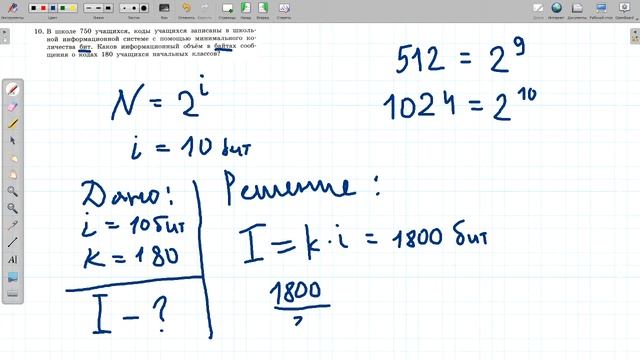 10. В школе 750 учащихся, коды учащихся записаны в школь-
ной информационной системе с помощью минимального ко-
личества бит. Каков информационный объём в байтах сооб-
щения о кодах 180 учащихся начальных классов?
512 = 2^9
1024 = 2^10
N = 2^i
i = 10 бит
Дано:
i = 10 бит
K = 180
I - ?
Решение:
I = k · i = 1800 бит
1800